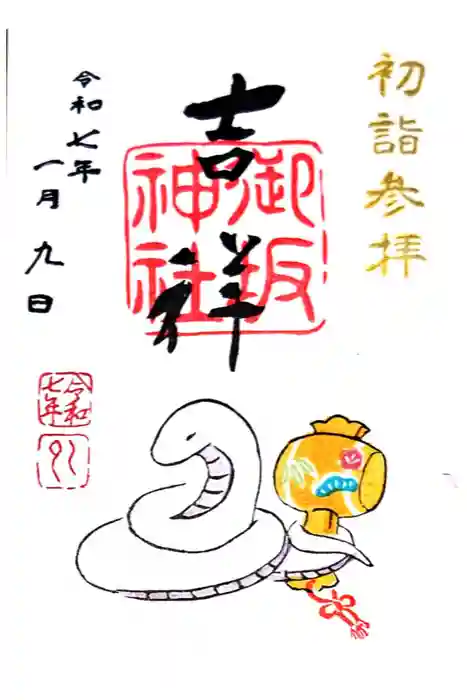 初詣参拝
御坂
神社
吉祥
令和七年
一月九日
令和
七年